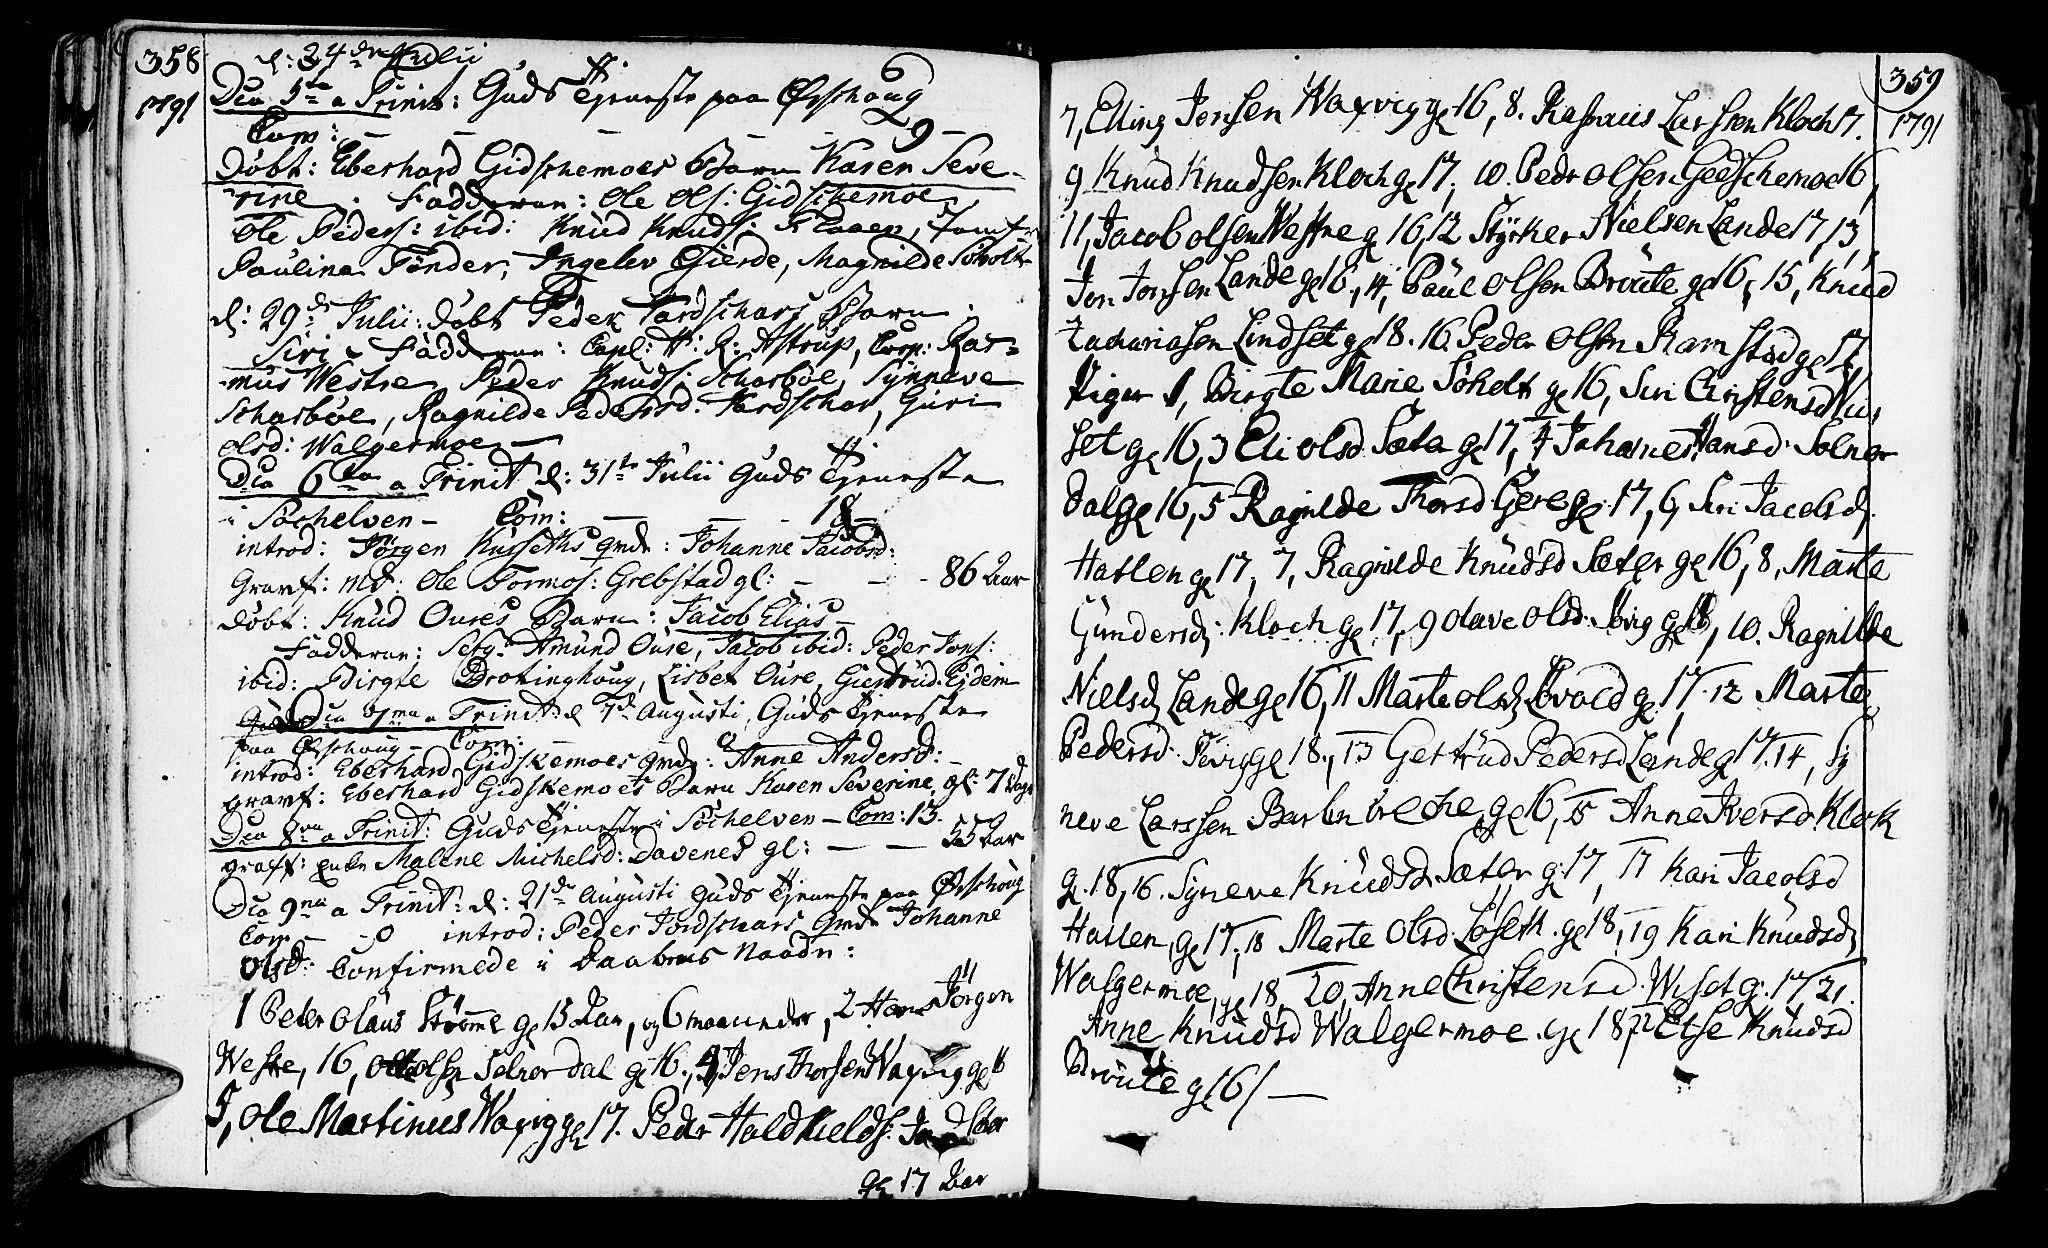 358
1791
d: 24de Julii
Dca 5ta a Trinit: Guds Tjeneste paa Ørschoug
Com: — — — — 9 —
Døbt: Eberhard Gidschemoes Barn Karen Seve-
rine. Fadderne: Ole Ols: Gidschemoe,
Ole Peders: ibid: Knud Knuds: Jomfr
Paulina Tønder, Ingelev Gierde, Magnilde Soholt
d: 29de Julii: døbt Peder Jordschars Barn
Siri – Fadderne: Capl: H: R: Astrup, Corp: Ras-
mus Westre, Peder Knuds: Scharbøe, Synneve
Scharbøe, Ragnilde Pedersd: Jordschar, Guri
Olsd: Walgermoe —
Dca 6ta a Trinit d: 31te Julii Guds Tjeneste
i Søchelven – Com: — — 18 —
introd: Jørgen Kurseths qvde: Johanne Jacobsd:
Gravf: Md: Ole Tormos: Grebstad gl: — — 86 Aar
døbt: Knud Oures Barn: Jacob Elias —
Fadderne: Amund Oure, Jacob ibid: Peder Jons:
ibid: Birgte Drotninghoug, Lisbet Oure, Giertrud Ejdem
Dca 7ma a Trinit: d 7de Augusti, Guds Tjeneste
paa Ørschoug – Com:
introd: Eberhard Gidskemoes qvde: Anne Andersd: —
gravf: Eberhard Gidskemoes Barn Karen Severine, gl: 7 Dage
Dca 8va a Trinit: Guds Tjeneste i Søchelven – Com: 15.
graft: Enke Malene Michelsd: Davenes gl: — — 55 Aar
Dca 9na a Trinit: d: 21de Augusti Guds Tjeneste paa Ørschoug
Com — introd: Peder Jordschars Qvde Johanne
Olsd: Confirmede i Daabens Naade:
1 Peter Olaus Strømme ge 15 Aar, og 6 maaneder, 2 Hans Jørgen
Westre, 16, Olsen Solnordal ge 16, 4, Jens Thorsen Waxvig ge 16
5, Ole Martinus Waxvig ge 17. Peder Hald Kields:
ge 17 Aar
359
1791
7, Elling Jonsen Waxvig ge 16, 8. Rasmus Larssen Kloch 17.
9 Knud Knudsen Kloch ge 17, 10. Peder Olsen Gedschemoe 16,
11, Jacob Olsen Westre g 16, 12 Styrker Nielsen Lande 17, 13,
Jon Jonsen Lande ge 16, 14, Paul Olsen Broute ge 16, 15, Knud
Zachariasen Lindset ge 18. 16. Peder Olsen Ramstad ge 17,
Piger 1, Birgte Marie Soholt ge 16, Siri Christensd Wii-
set ge 16, 3 Eli Olsd Sæter ge 17, 4 Johane Hansd: Solnor
dal ge 16, 5 Ragnilde Thorsd Gere ge: 17, 6, Siri Jacobsd.
Hatlen ge 17, 7, Ragnilde Knudsd Sæter ge 16, 8, Marte
Gundersd: Kloch ge 17, 9 Olave Olsd: Svig ge 16, 10. Ragnilde
Nielsd Lande ge 16, 11 Marte Olsd Lvold ge 17. 12 Marte
Pedersd: ge 18., 13 Gertrud Pedersd Lande g 17. 14, Sy
neve Larssen ge 16, 15 Anne Iversd. Klock
ge. 18, 16. Syneve Knudsd. Sæter g: 17, 17 Kari Jacobsd
Hatlen, ge 17, 18 Marte Olsd: Løseth ge 18, 19 Kari Knudsd,
Walgermoe, ge 18, 20, Anne Christensd. Wiset g: 17, 21.
Anne Knudsd Walgermoe. ge 18, 22 Else Knudsd
Broute ge 16 / —